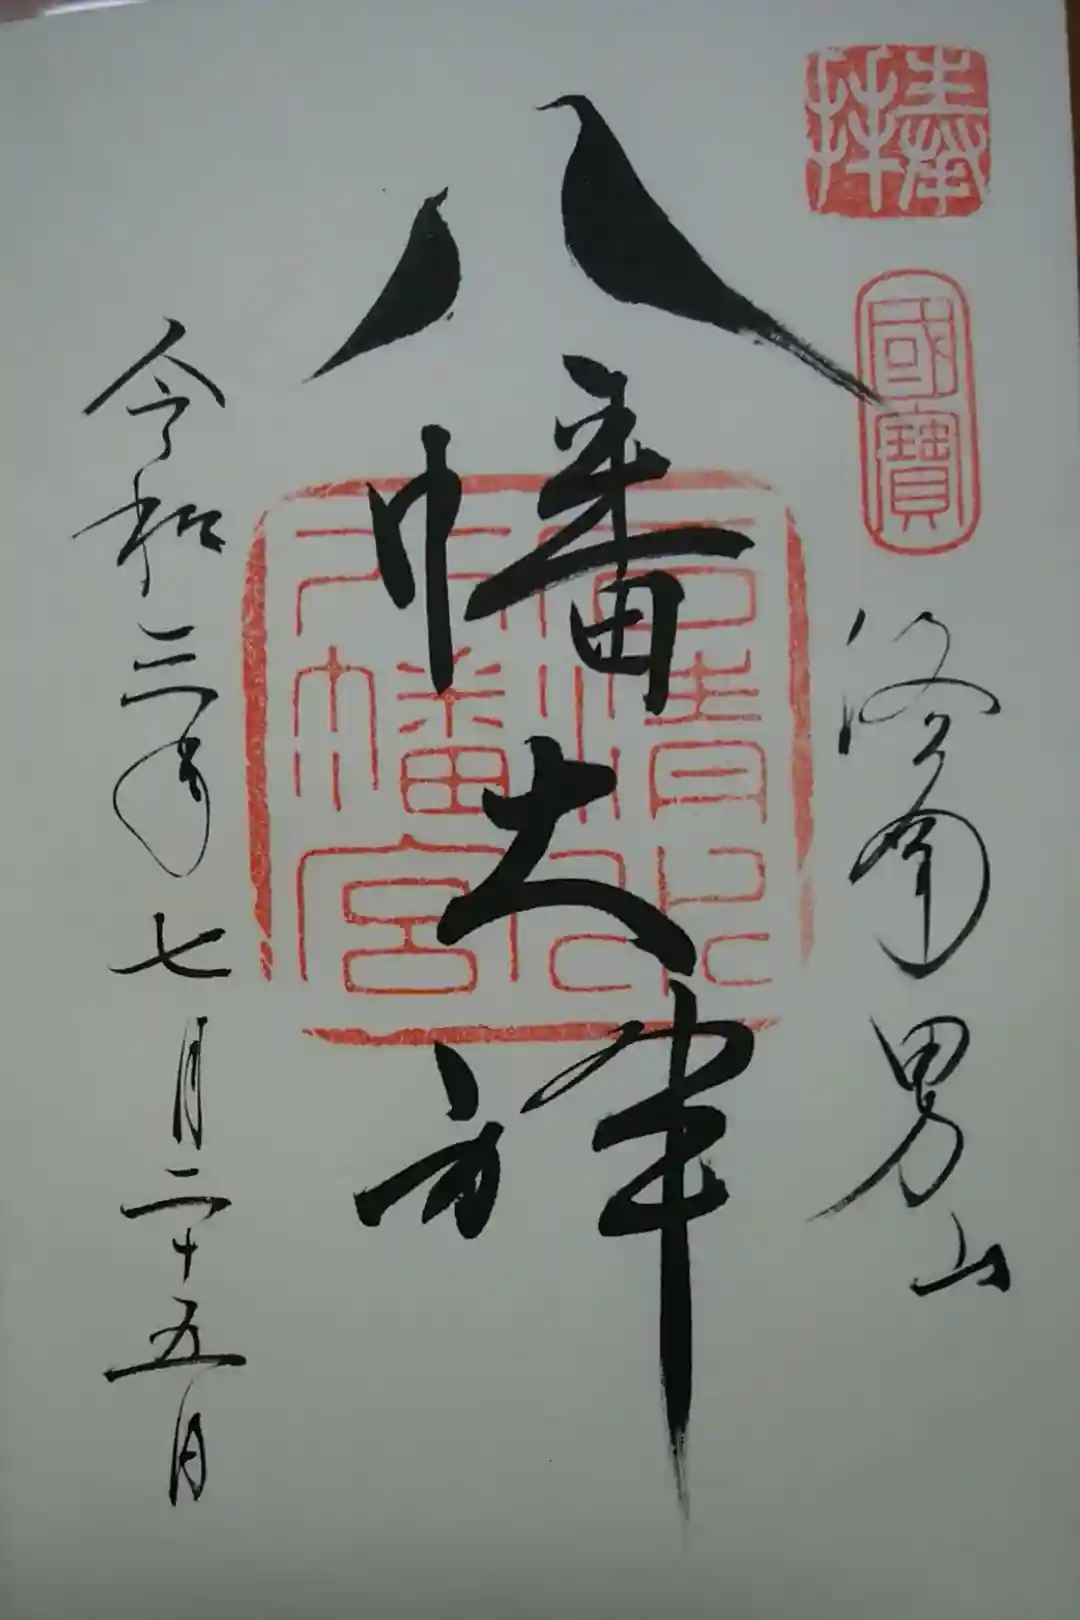 奉拝
國寶
洛南男山
八幡大神
石清水
八幡宮
令和三年七月二十五日